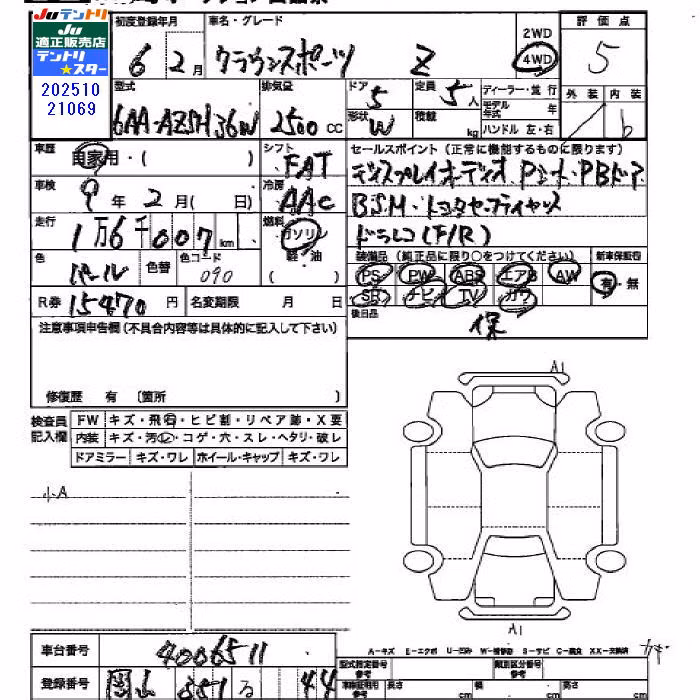 JU テントリ
JU
適正販売店
テントリ
★スター
202510
21069
初度登録年月
6 2月
車名・グレード
クラウンスポーツ Z
2WD
4WD
評価点
5
外装 内装
b
型式
6AA-AZSH36W
排気量
2500 CC
ドア
5
形状
W
定員
5人
積載
kg
ディーラー・並行
モデル年式 年
ハンドル 左・右
車歴
自家用・( )
シフト
FAT
セールスポイント (正常に機能するものに限ります)
ディスプレイオーディオ Pシート・PBドア
BSM・トヨタセーフティセンス
ドラレコ(F/R)
車検
9年 2月( 日)
冷房
AAC
走行
1万6千007km
燃料
ガソリン
軽・油
( )
色
パール
色替
色コード
090
装備品 (純正品に限り○をつけてください)
新車保証書
PS PW ABS エアB AW
SR ナビ TV カワ
有・無
後日品
保
R券 15470円
名変期限 月 日
注意事項申告欄(不具合内容等は具体的に記入して下さい)
修復歴 有 〔箇所 〕
検査員
記入欄
FW キズ・飛石・ヒビ割・リペア跡・X要
内装 キズ・汚・コゲ・穴・スレ・ヘタリ・破レ
ドアミラー キズ・ワレ ホイール・キャップ キズ・ワレ
小A
A1
A1
A-キズ E-エクボ U-凹み W-補修跡 S-サビ C-腐食 XX-交換済
車台番号
4006511
登録番号
岡山 351 る 44
型式指定番号
参考
類別区分番号
参考
長さ cm
幅 cm
高さ cm